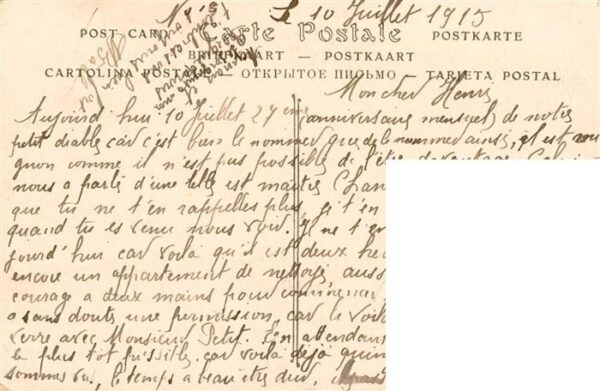 N° 8
Le 10 Juillet 1915
POST CARD Carte Postale POSTKARTE
BRIEFKAART — POSTKAART
CARTOLINA POSTALE — ОТКРЫТОЕ ПИСЬМО — TARJETA POSTAL
Mon cher Henri
Aujourd'hui 10 Juillet 27ème anniversaire mensuel de notre
petit diable car c'est bien le nommer que de le nommer ainsi, il est
quon comme il n'est pas possible de l'être davantage
nous a parlé d'une telle est maitre Chan
que tu ne t'en rappelles plus, je t'en
quand tu es venu nous voir. Je ne t'en
jourd'hui car voilà qu'il est deux heu
encore un appartement de nettoyé auss
courage a deux mains pour commencer
a sans doute une permission, car le voilà
verre avec Monsieur Petit. En attendan
le plus tôt possible, car voilà déjà quin
sommes vu, le temps a beau être dur,